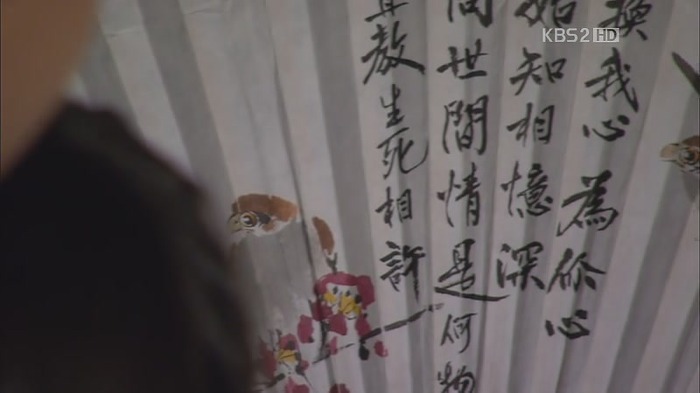 KBS2 HD
換我心為你心
始知相憶深
問世間情是何物
教生死相許